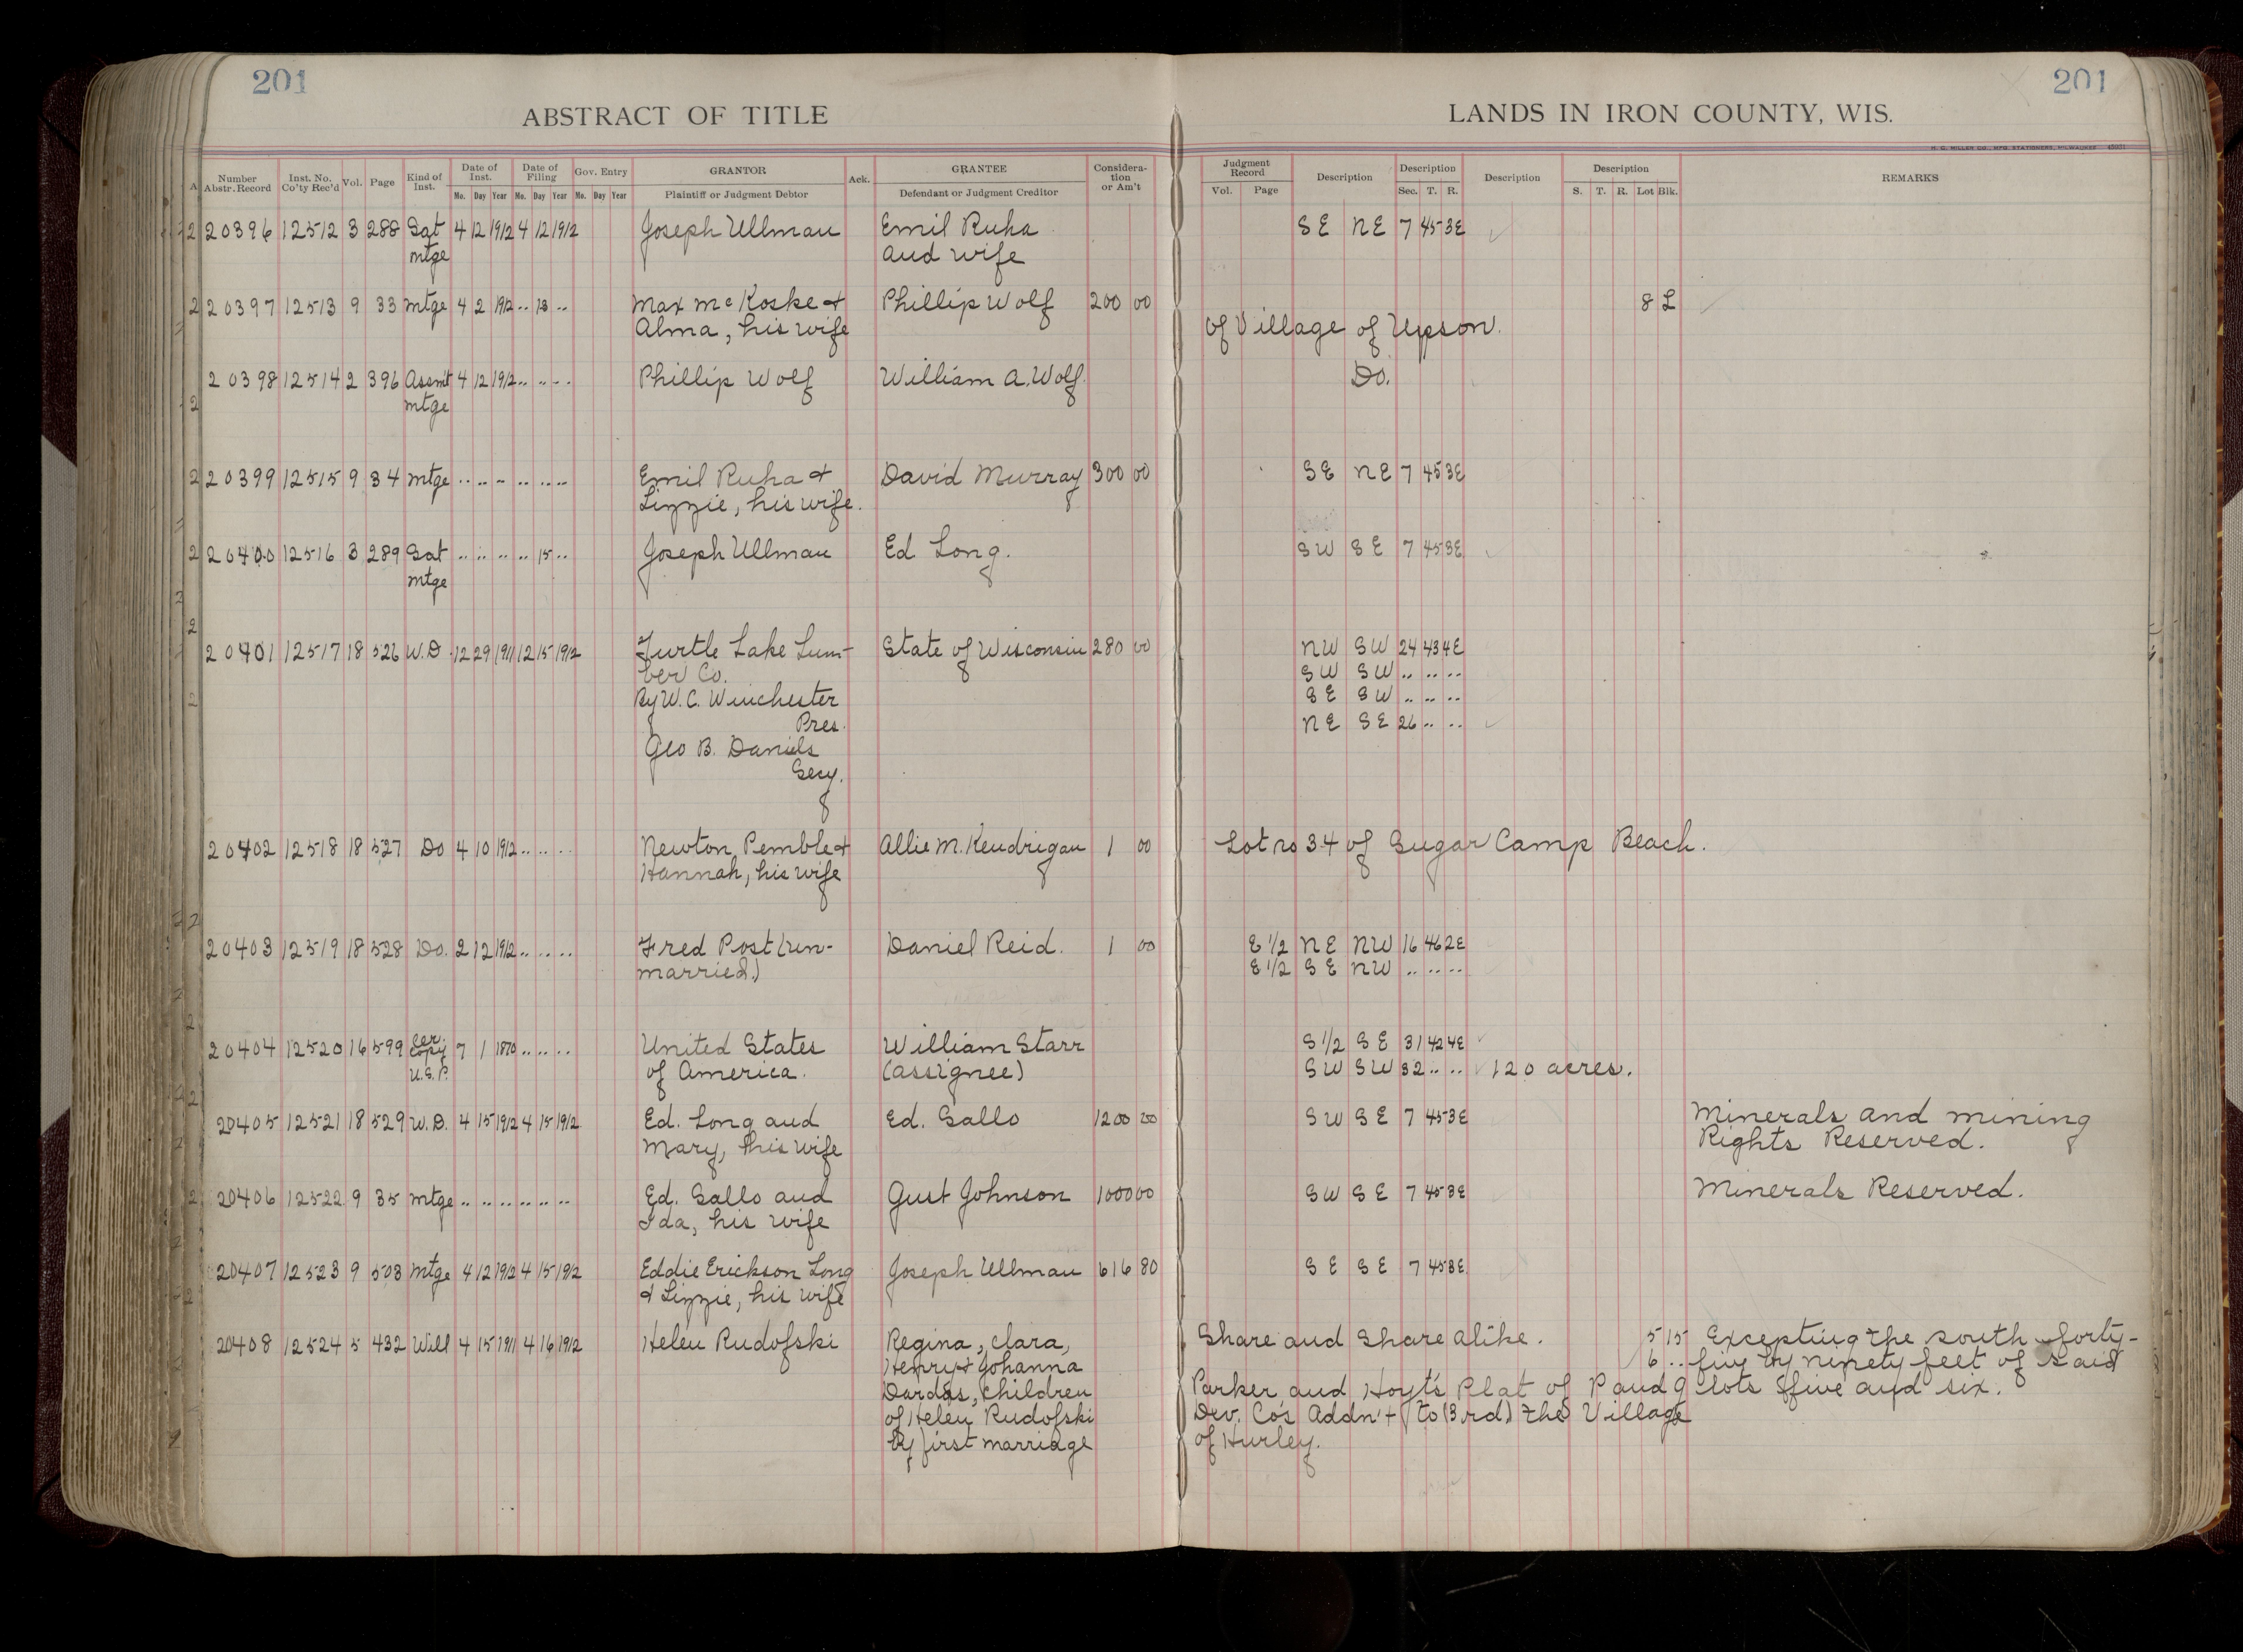 201
201
ABSTRACT OF TITLE
LANDS IN IRON COUNTY, WIS.
H. C. MILLER CO., MFG. STATIONERS, MILWAUKEE
A Number Abstr. Record Inst. No. Co'ty Rec'd Vol. Page Kind of Inst. Date of Inst. Date of Filing Gov. Entry GRANTOR Ack. GRANTEE Considera-tion or Am't Judgment Record Description Description Description Description REMARKS
Mo. Day Year Mo. Day Year Mo. Day Year Plaintiff or Judgment Debtor Defendant or Judgment Creditor Vol. Page Sec. T. R. S. T. R. Lot Blk.
2 20396 12512 3 288 Sat 4 12 1912 4 12 1912 Joseph Ullman Emil Ruha SE NE 7 45 3E
mtge and wife
2 20397 12513 9 33 mtge 4 2 1912 .. 13 .. Max McKoske & Phillip Wolf 200 00 8 L
Alma, his wife of Village of Upson.
20398 12514 2 396 Assm't 4 12 1912 .. .. .. Phillip Wolf William A. Wolf. Do.
2 mtge
2 20399 12515 9 34 mtge .. .. .. .. .. .. Emil Ruha & David Murray 300 00 SE NE 7 45 3E
Lizzie, his wife.
2 20400 12516 3 289 Sat .. .. .. .. 15 .. Joseph Ullman Ed Long. SW SE 7 45 3E
mtge
2
20401 12517 18 526 W.D. 12 29 1911 12 15 1912 Turtle Lake Lum- State of Wisconsin 280 00 NW SW 24 43 4E
ber Co. SW SW .. .. ..
2 By W. C. Winchester SE SW .. .. ..
Pres. NE SE 26 .. ..
Geo B. Daniels
Secy.
20402 12518 18 527 Do 4 10 1912 .. .. .. Newton Pemble & Allie M. Kendrigan 1 00 Lot no 34 of Sugar Camp Beach.
Hannah, his wife
2
20403 12519 18 528 Do. 2 12 1912 .. .. .. Fred Post (un- Daniel Reid. 1 00 E 1/2 NE NW 16 46 2E
married.) E 1/2 SE NW .. .. ..
2
20404 12520 16 599 Cer. 7 1 1870 .. .. .. United States William Starr S 1/2 SE 31 42 4E
copy of America. (assignee) SW SW 32 .. .. 120 acres.
U.S.P.
2
20405 12521 18 529 W.D. 4 15 1912 4 15 1912 Ed. Long and Ed. Sallo 1200 00 SW SE 7 45 3E Minerals and mining
Mary, his wife Rights Reserved.
2 20406 12522 9 35 mtge .. .. .. .. .. .. Ed. Sallo and Gust Johnson 1000 00 SW SE 7 45 3E Minerals Reserved.
Ida, his wife
20407 12523 9 508 Mtge 4 12 1912 4 15 1912 Eddie Erickson Long Joseph Ullman 616 80 SE SE 7 45 3E
2 & Lizzie, his wife
20408 12524 5 432 Will 4 15 1911 4 16 1912 Helen Rudofski Regina, Clara, Share and Share alike. 5 15 Excepting the south forty-
Henry & Johanna 6 .. five by ninety feet of said
Dardas, children Parker and Hoyt's Plat of P and 9 lots five and six.
of Helen Rudofski Dev. Co's Addn't to (3rd) the Village
by first marriage of Hurley.